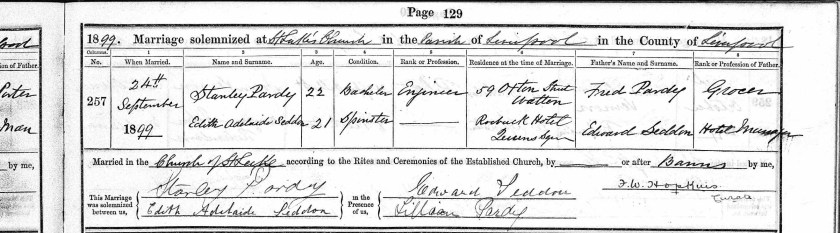 Page 129
1899. Marriage solemnized at St Luke's Church in the Parish of Liverpool in the County of Liverpool
Columns. 1 2 3 4 5 6 7 8
No. When Married. Name and Surname. Age. Condition. Rank or Profession. Residence at the time of Marriage. Father's Name and Surname. Rank or Profession of Father.
257 24th September 1899 Stanley Pardy 22 Bachelor Engineer 59 Street Walton Fred Pardy Grocer
Edith Adelaide Seddon 21 Spinster Roebuck Hotel Queens Sqre Edward Seddon Hotel Manager
Married in the Church of St Luke according to the Rites and Ceremonies of the Established Church, by or after Banns by me,
This Marriage was solemnized between us, Stanley Pardy in the Presence of us, Edward Seddon F. W. Hopkins
Edith Adelaide Seddon Lillian Pardy Curate
ion of Father.
by me,